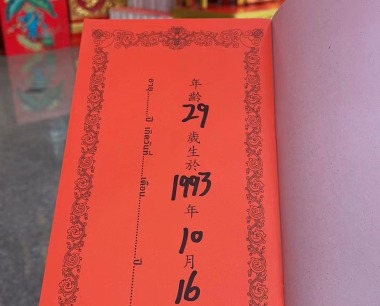 年齡 29 歲生於 1993 年 10 月 16
อายุ..........ปี เกิดวันที่....................เดือน....................ปี